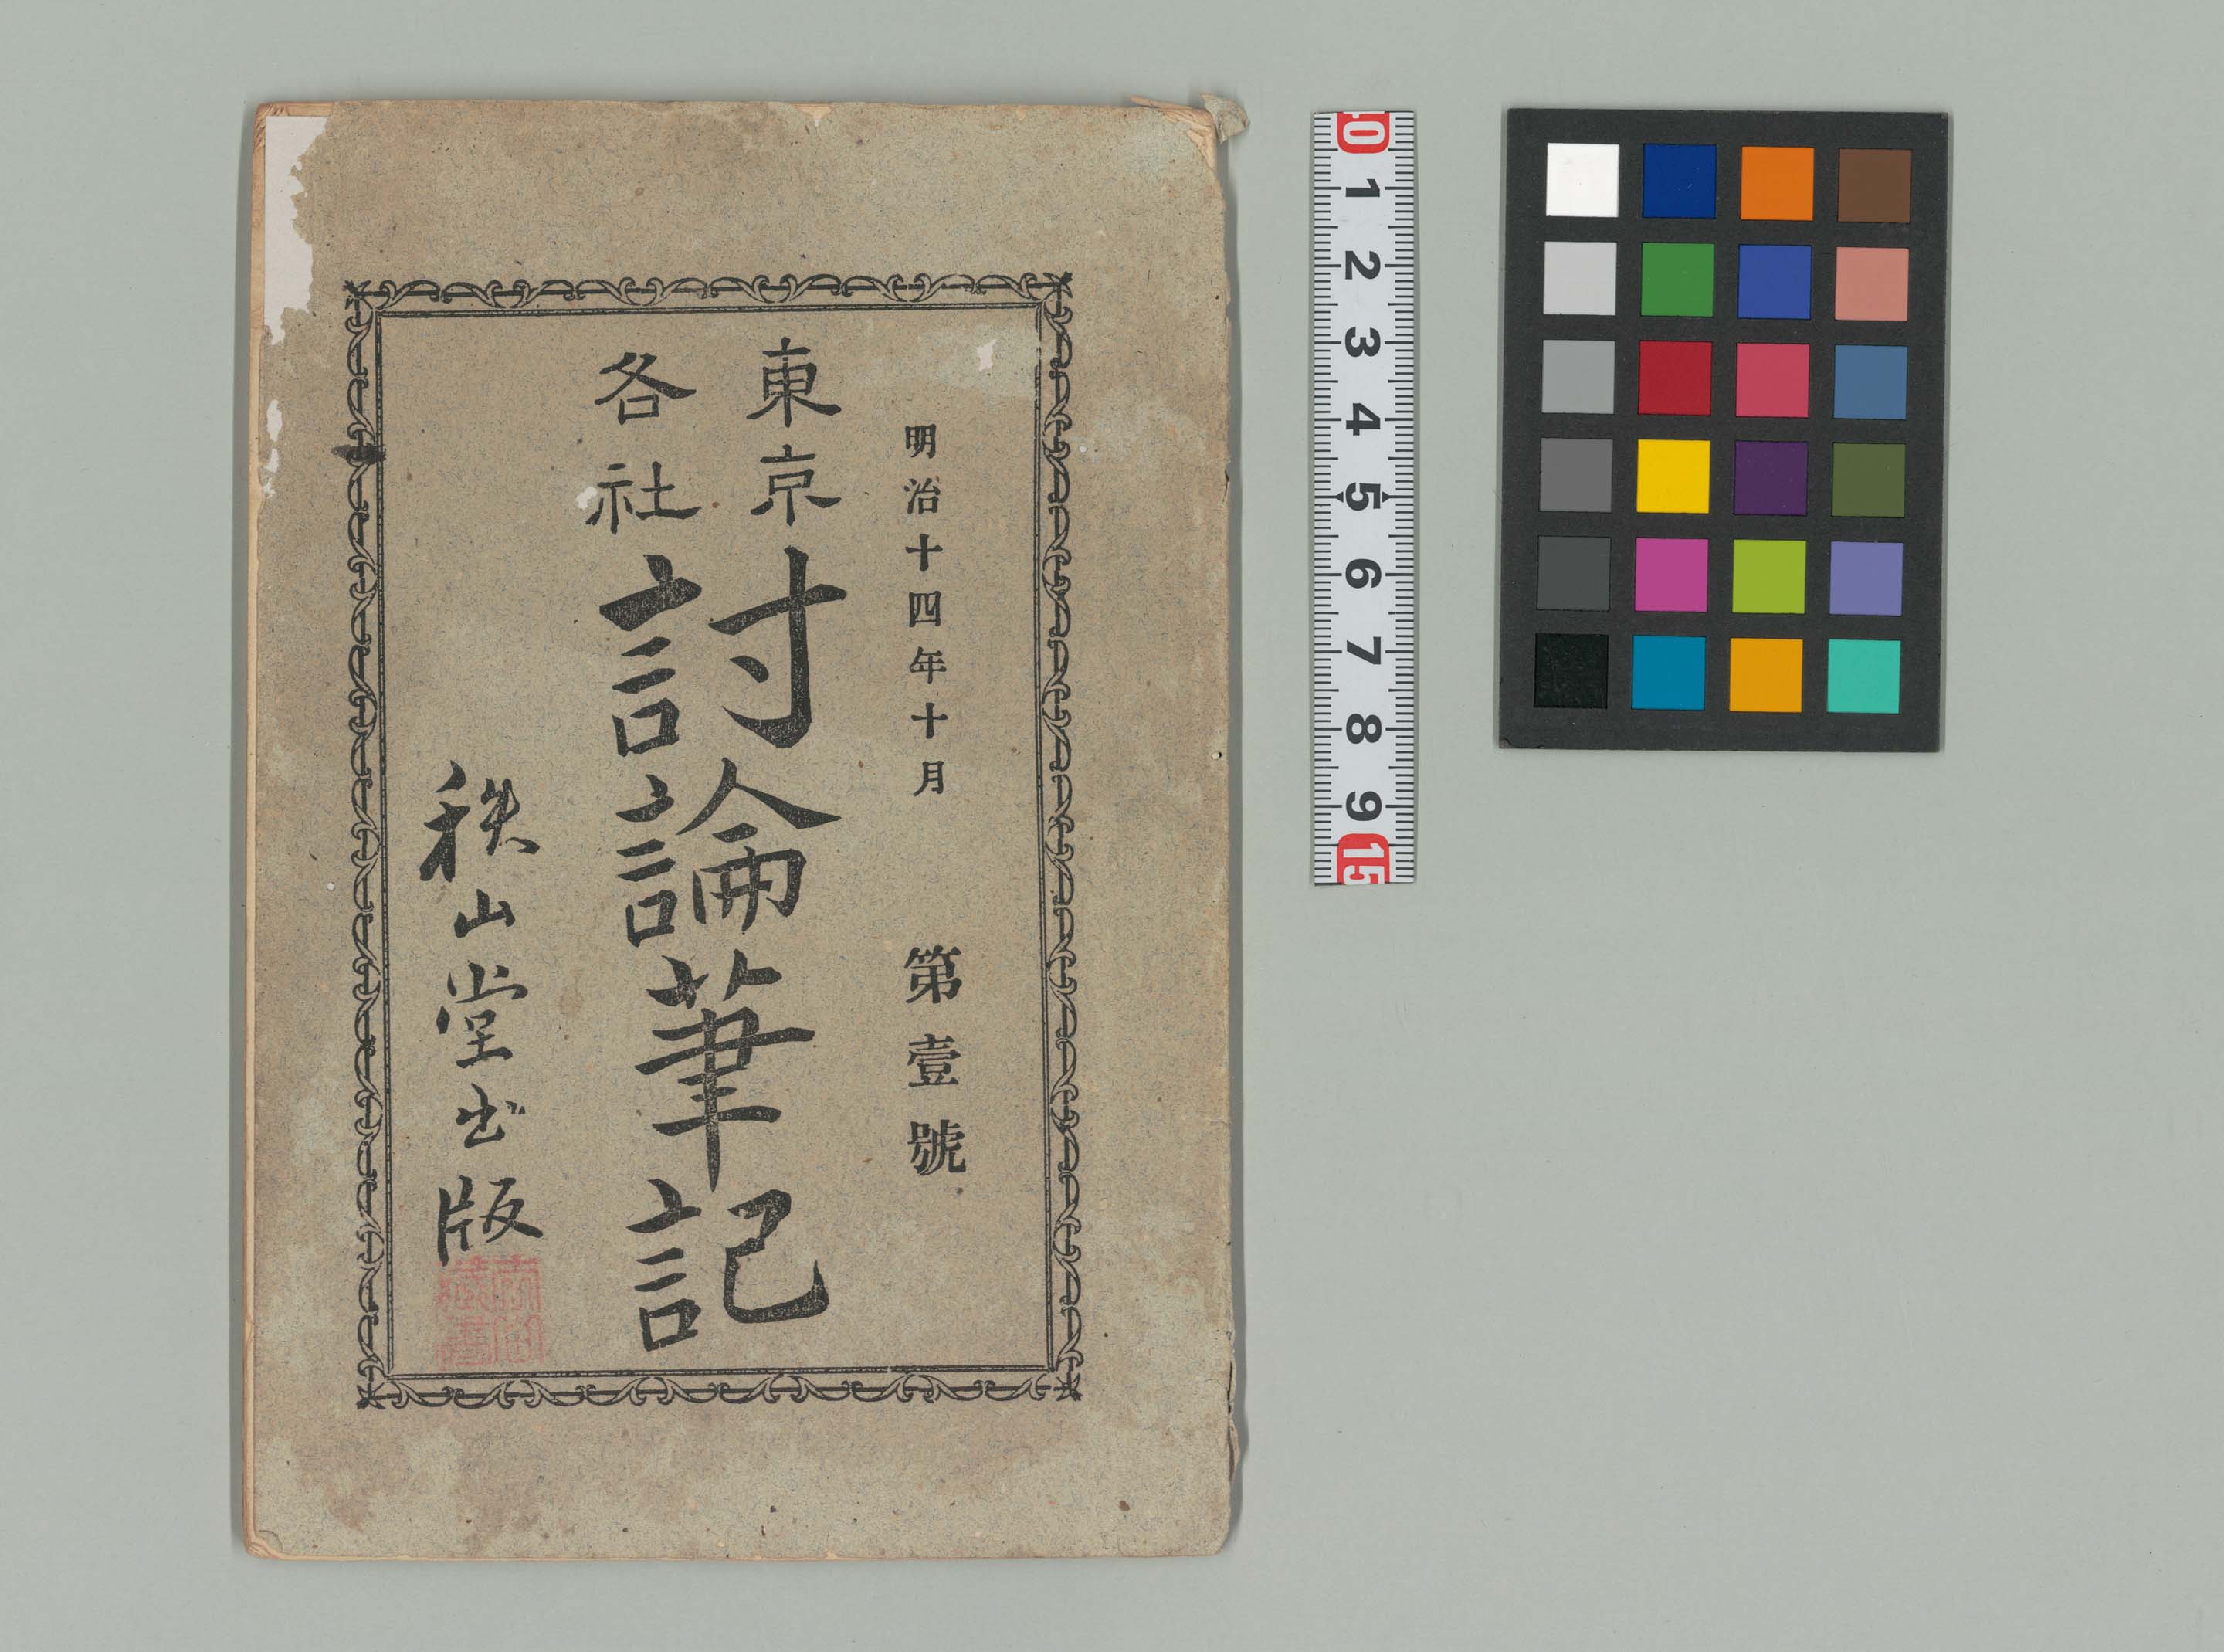 明治十四年十月　第壹號
東京
各社
討論筆記
秩山堂出版
10
1
2
3
4
5
6
7
8
9
15